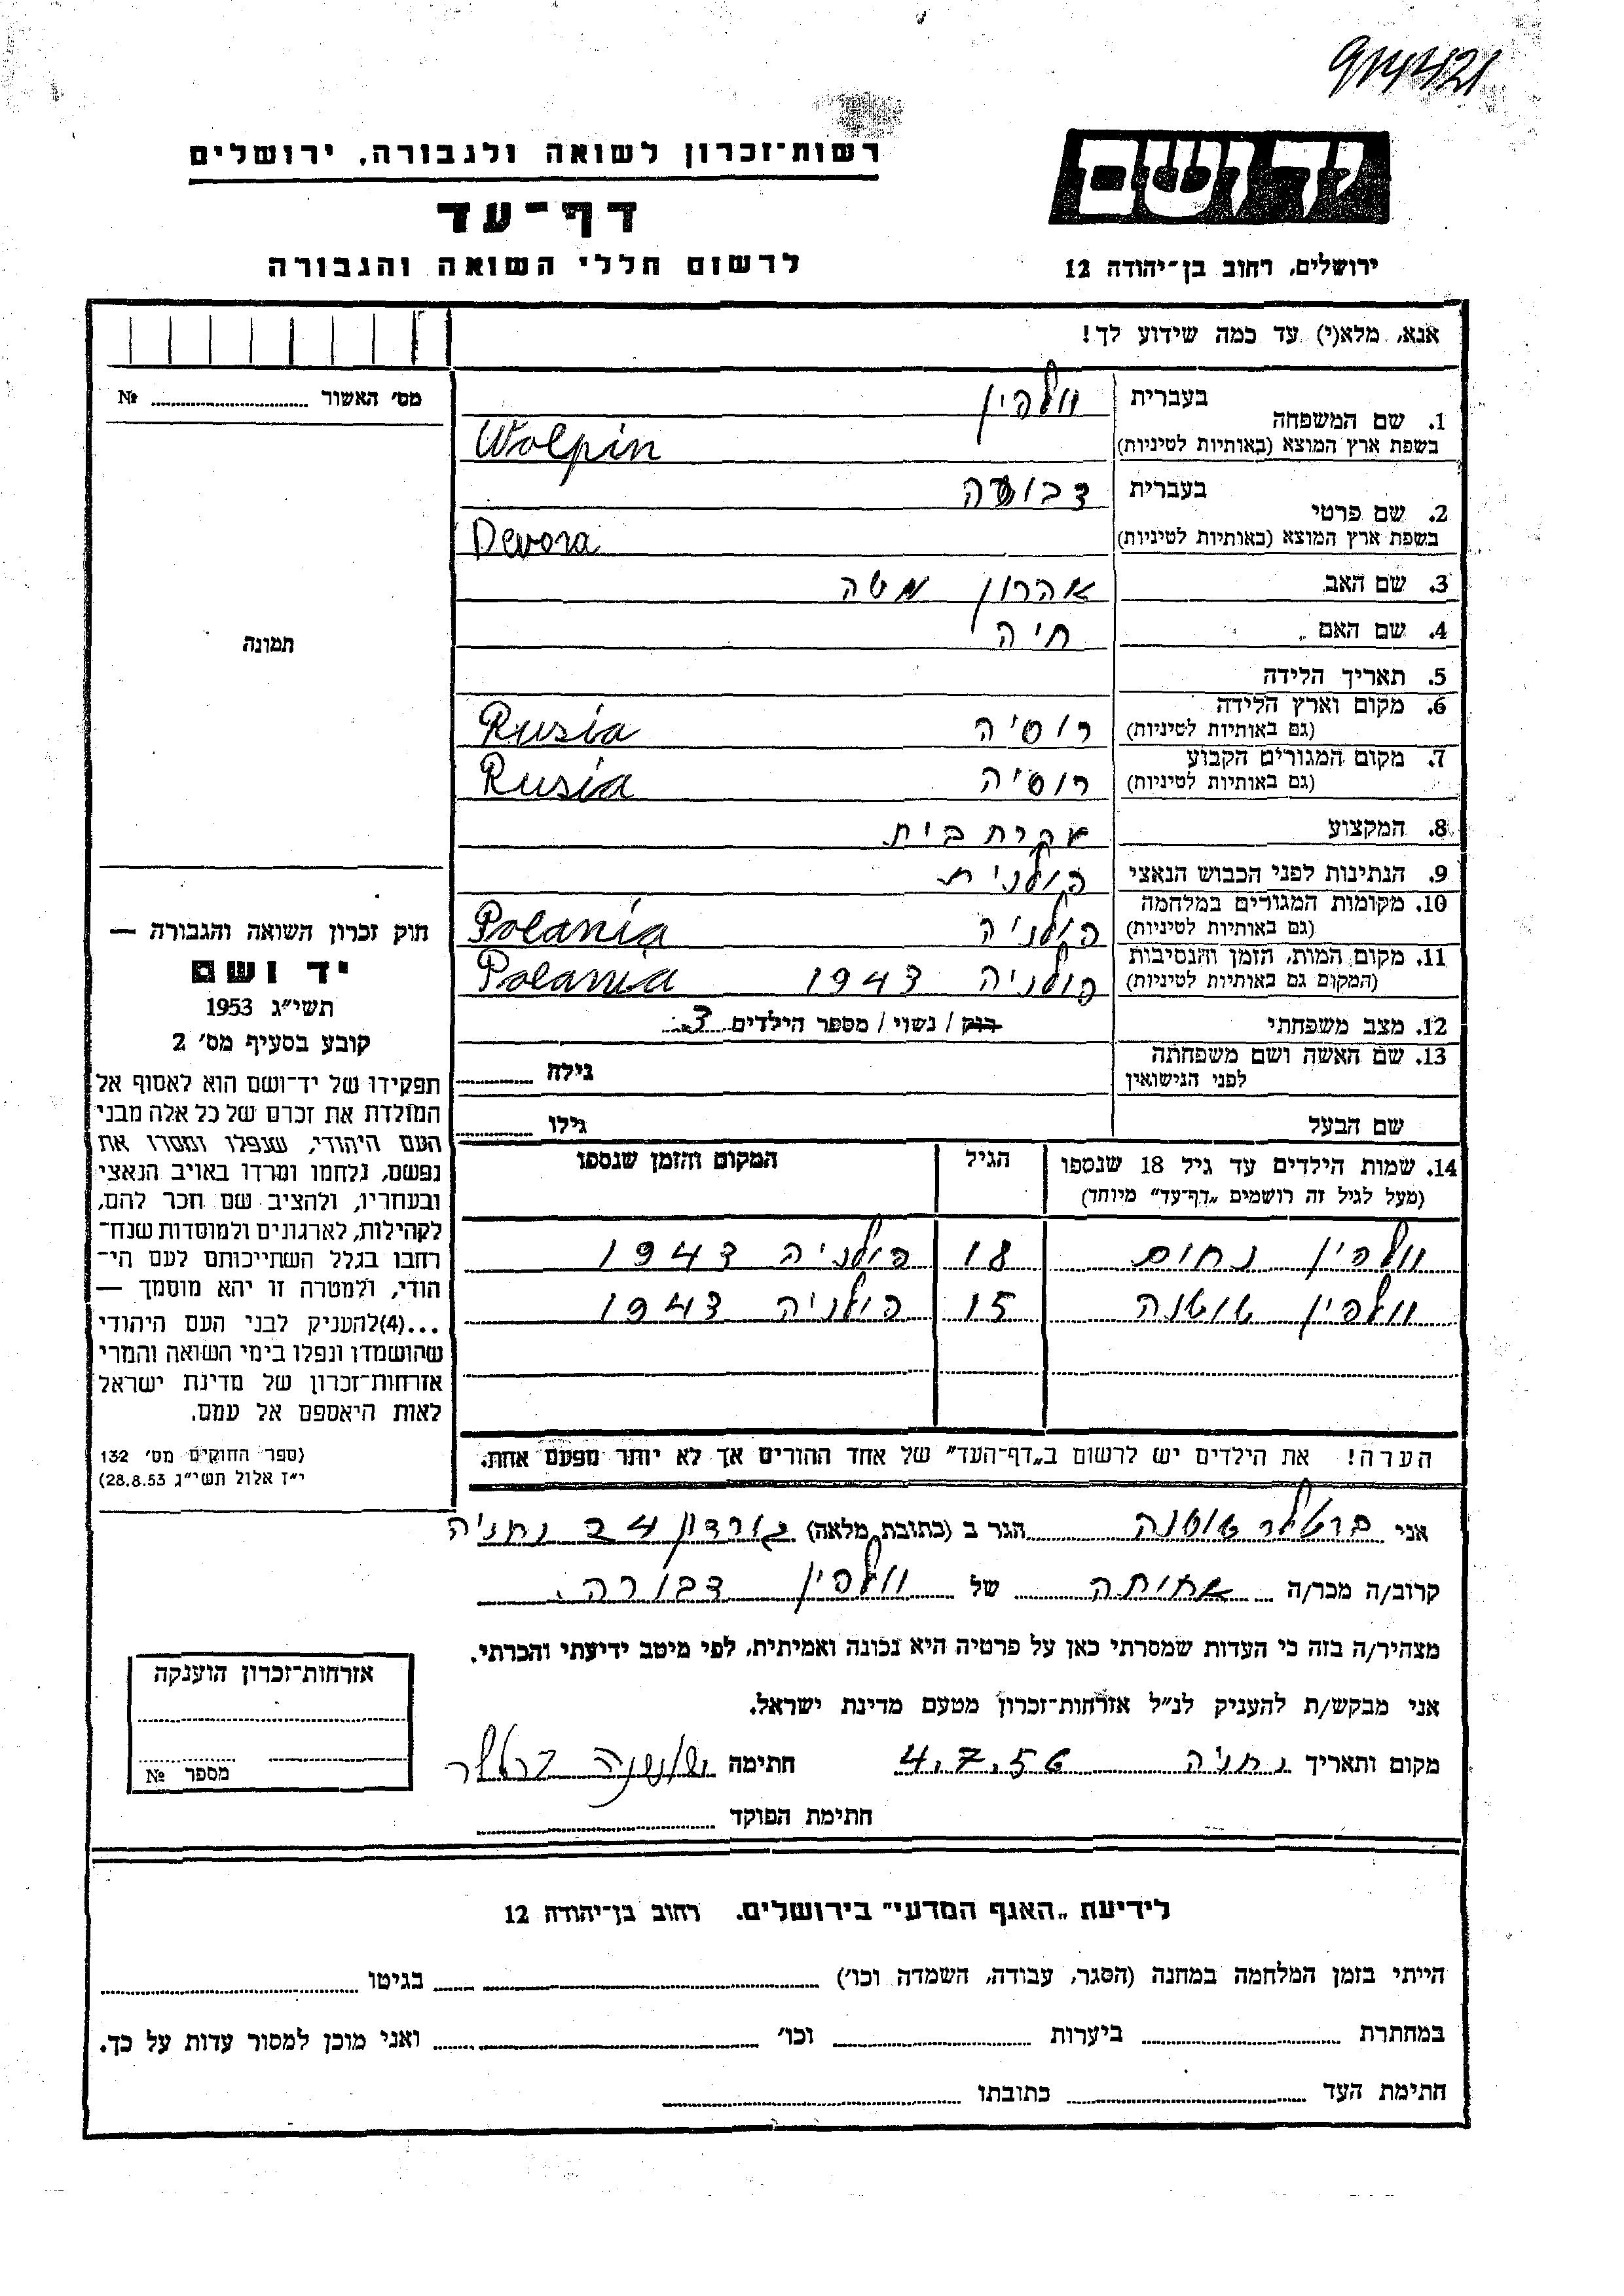 רשות־זכרון לשואה ולגבורה, ירושלים
דף־עד
לרשום חללי השואה והגבורה
יד ושם
ירושלים, רחוב בן־יהודה 12
אנא, מלא(י) עד כמה שידוע לך!
מס׳ האשור № 
תמונה
חוק זכרון השואה והגבורה —
יד ושם
תשי״ג 1953
קובע בסעיף מס׳ 2
תפקידו של יד־ושם הוא לאסוף אל
המולדת את זכרם של כל אלה מבני
העם היהודי, שנפלו ומסרו את
נפשם, נלחמו ומרדו באויב הנאצי
ובעוזריו, ולהציב שם וזכר להם,
לקהילות, לארגונים ולמוסדות שנח־
רחבו בגלל השתייכותם לעם הי־
הודי, ולמטרה זו יהא מוסמך —
...(4)להעניק לבני העם היהודי
שהושמדו ונפלו בימי השואה והמרי
אזרחות־זכרון של מדינת ישראל
לאות היאספם אל עמם.
(ספר החוקים מס׳ 132
י״ז אלול תשי״ג 28.8.53)
1. שם המשפחה
בעברית וולפין
בשפת ארץ המוצא (באותיות לטיניות) Wolpin
2. שם פרטי
בעברית דבורה
בשפת ארץ המוצא (באותיות לטיניות) Devora
3. שם האב אהרון משה
4. שם האם חיה
5. תאריך הלידה
6. מקום וארץ הלידה (גם באותיות לטיניות) רוסיה Rusia
7. מקום המגורים הקבוע (גם באותיות לטיניות) רוסיה Rusia
8. המקצוע עקרת בית
9. הנתינות לפני הכבוש הנאצי פולנית
10. מקומות המגורים במלחמה (גם באותיות לטיניות) פולניה Polania
11. מקום המות, הזמן והנסיבות (המקום גם באותיות לטיניות) פולניה 1943 Polania
12. מצב משפחתי רוק / נשוי / מספר הילדים 3
13. שם האשה ושם משפחתה לפני הנישואין גילה
שם הבעל גילו
14. שמות הילדים עד גיל 18 שנספו הגיל המקום והזמן שנספו
(מעל לגיל זה רושמים „דף־עד״ מיוחד)
וולפין נחום 18 פולניה 1943
וולפין שושנה 15 פולניה 1943
הערה! את הילדים יש לרשום ב„דף־העד״ של אחד ההורים אך לא יותר מפעם אחת.
אני ברטלר שושנה הגר ב (כתובת מלאה) גורדון 24 נתניה
קרוב/ה מכר/ה אחותה של וולפין דבורה.
מצהיר/ה בזה כי העדות שמסרתי כאן על פרטיה היא נכונה ואמיתית, לפי מיטב ידיעתי והכרתי.
אני מבקש/ת להעניק לנ״ל אזרחות־זכרון מטעם מדינת ישראל.
מקום ותאריך נתניה 4.7.56 חתימה שושנה ברטלר
חתימת הפוקד
אזרחות־זכרון הוענקה
מספר №
לידיעת „האגף המדעי״ בירושלים. רחוב בן־יהודה 12
הייתי בזמן המלחמה במחנה (הסגר, עבודה, השמדה וכו׳) בגיטו
במחתרת ביערות וכו׳ ואני מוכן למסור עדות על כך.
חתימת העד כתובתו